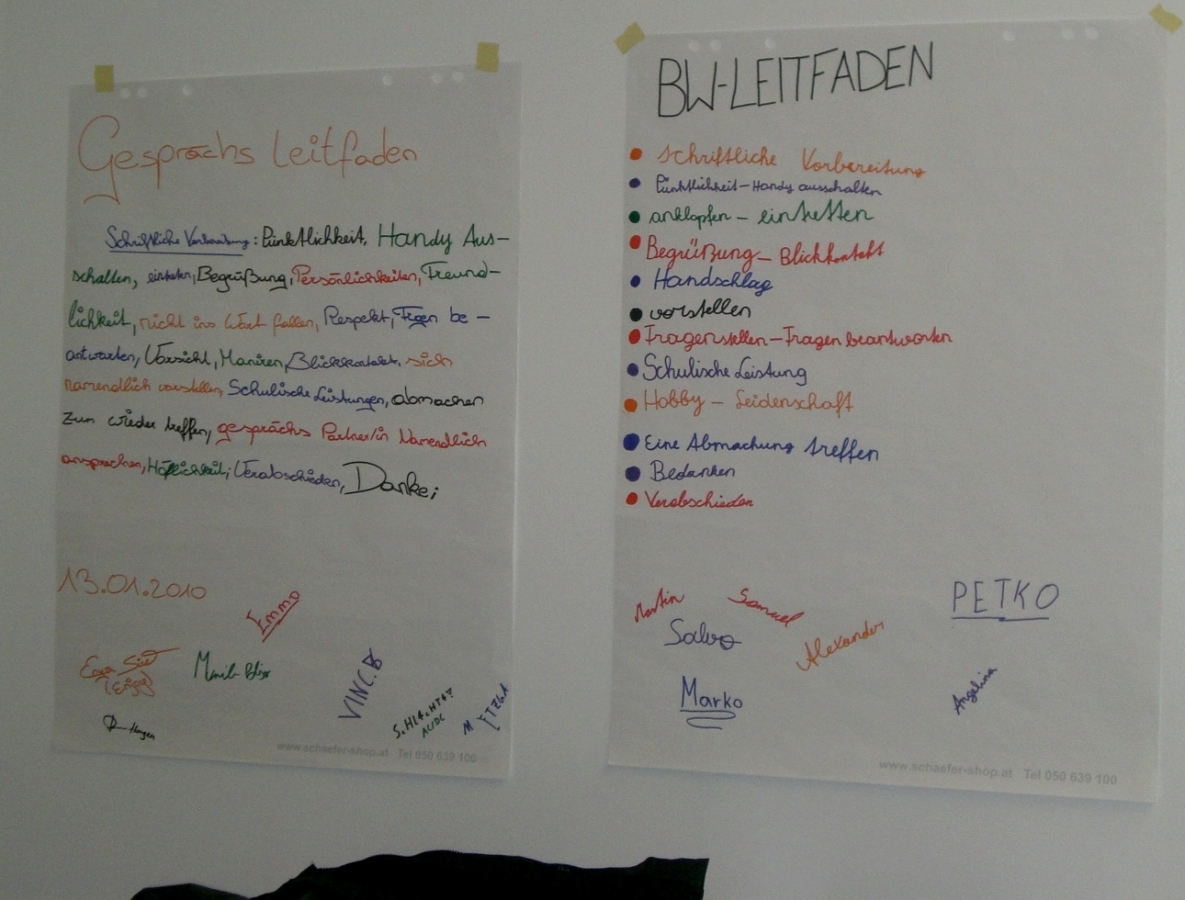 Gesprächs Leitfaden
Schriftliche Vorbereitung: Pünktlichkeit, Handy Aus-
schalten, eintreten, Begrüßung, Persönlichkeiten, Freund-
lichkeit, nicht ins Wort fallen, Respekt, Fragen be-
antworten, Vorsicht, Maniren, Blickkontakt, sich
namendlich vorstellen, Schulische Leistungen, abmachen
zum wieder treffen, gesprächs Partner/in Namendlich
ansprechen, Höflichkeit, Verabschieden, Danke;
13.01.2010
Emmo
VINC.B
www.schaefer-shop.at Tel 050 639 100
BW-LEITFADEN
• schriftliche Vorbereitung
• Pünktlichkeit-Handy ausschalten
• anklopfen - eintretten
• Begrüßung - Blickkontakt
• Handschlag
• vorstellen
• Fragenstellen-Fragen beantworten
• Schulische Leistung
• Hobby - Leidenschaft
• Eine Abmachung treffen
• Bedanken
• Verabschieden
PETKO
Martin Samuel
Salvo
Alexander
Marko
Angelina
www.schaefer-shop.at Tel 050 639 100